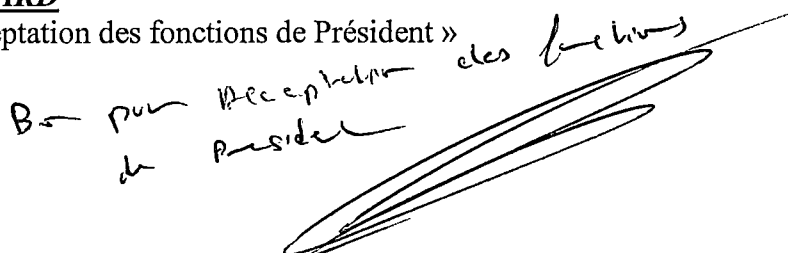 eptation des fonctions de Président »
Bon pour Acceptation des fonctions
de President